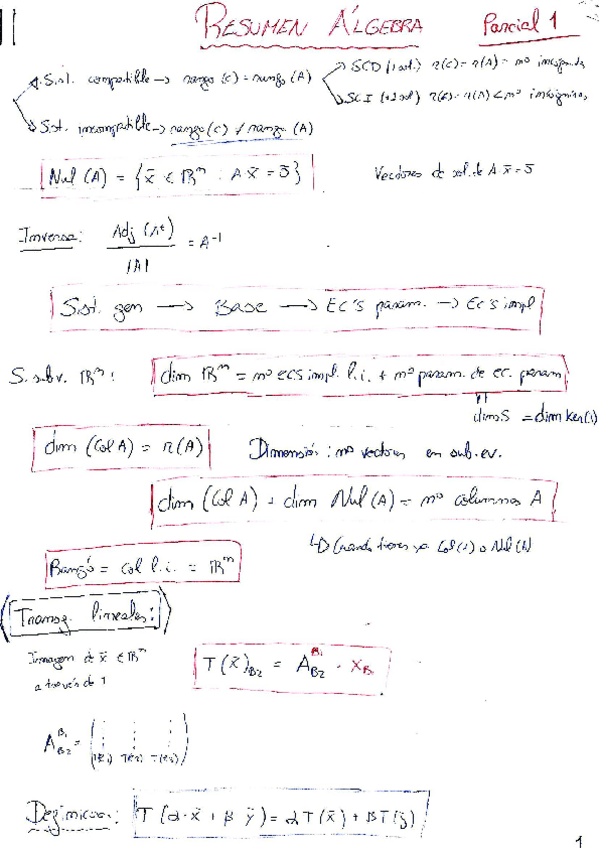 RESUMEN ÁLGEBRA Parcial 1
Sist. compatible → rango (c) = rango (A)
SCD (1 sol.) r(c) = r(A) = nº incógnitas
SCI (∞ sol) r(c) = r(A) < nº incógnitas
Sist. incompatible → rango (c) ≠ rango (A)
Nul (A) = { x̄ ∈ ℝⁿ : A x̄ = 0̄ } Vectores de sol. de A·x̄ = 0̄
Inversa: Adj (Aᵗ) / |A| = A⁻¹
Sist. gen → Base → Ec's param. → Ec's impl
S. subv. ℝⁿ : dim ℝⁿ = nº ecs impl. l.i. + nº param. de ec. param.
dim S = dim ker( )
dim (Col A) = r(A) Dimensión : nº vectores en sub. ev.
dim (Col A) + dim Nul (A) = nº columnas A
Cuando tienes ya Col( ) o Nul( )
Rango = col l.i. = ℝᵐ
Transf. lineales:
Imagen de x̄ ∈ ℝⁿ
a través de T
T(x̄)_B2 = A^B1_B2 · x_B
A^B1_B2 =
Definición: T (α·x̄ + β ȳ) = αT(x̄) + βT(ȳ)
1